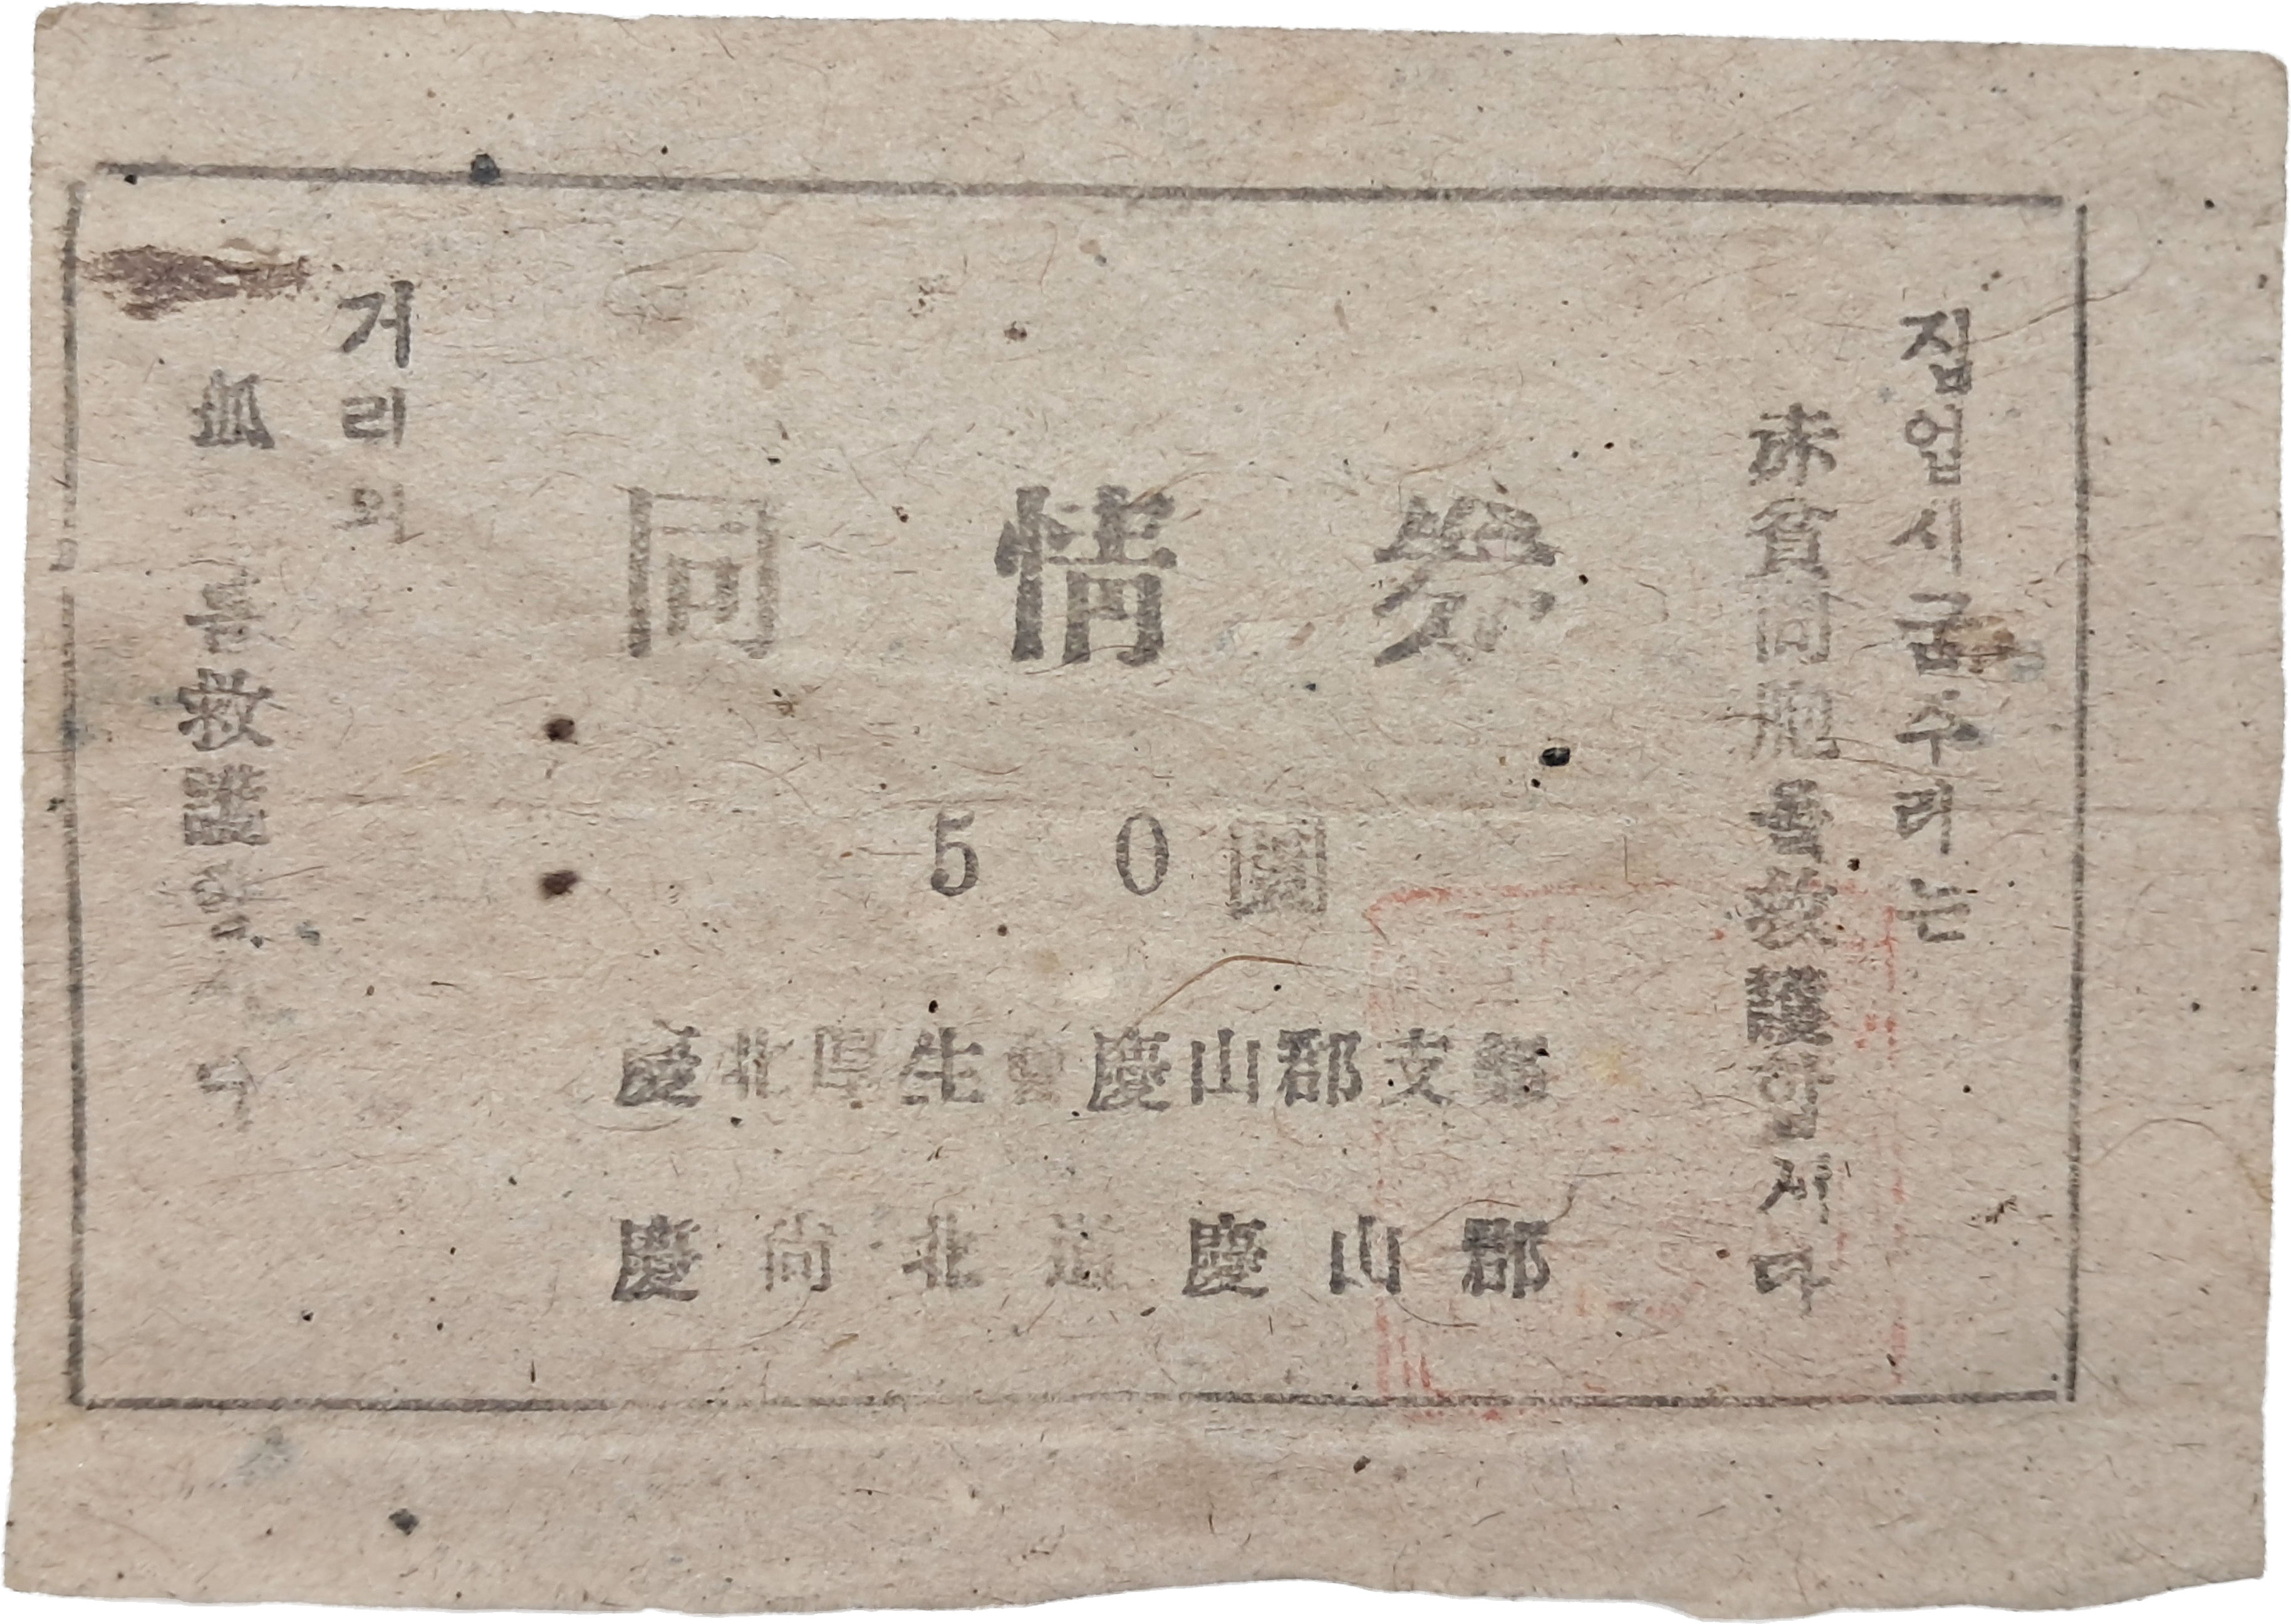 집업시굼주리는
赤貧同胞를救護합시다
同情券
50圓
慶北厚生會慶山郡支部
慶尙北道慶山郡
거리의
孤 를救護합시다